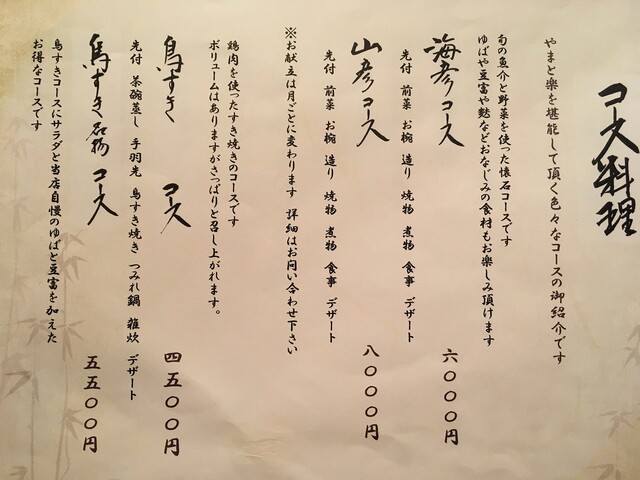 コース料理
やまと楽を堪能して頂く色々なコースの御紹介です
旬の魚介と野菜を使った懐石コースです
ゆばや豆富や麩などおなじみの食材もお楽しみ頂けます
海彦コース 六〇〇〇円
先付 前菜 お椀 造り 焼物 煮物 食事 デザート
山彦コース 八〇〇〇円
先付 前菜 お椀 造り 焼物 煮物 食事 デザート
※お献立は月ごとに変わります 詳細はお問い合わせ下さい
鶏肉を使ったすき焼きのコースです
ボリュームはありますがさっぱりと召し上がれます。
鳥すき コース 四五〇〇円
先付 茶碗蒸し 手羽先 鳥すき焼き つみれ鍋 雑炊 デザート
鳥すき名物 コース 五五〇〇円
鳥すきコースにサラダと当店自慢のゆばと豆富を加えた
お得なコースです